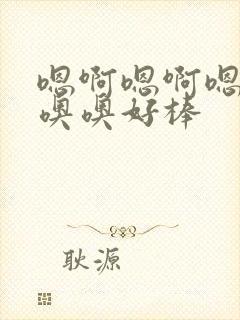 嗯啊嗯啊嗯
噢噢好棒
耿源